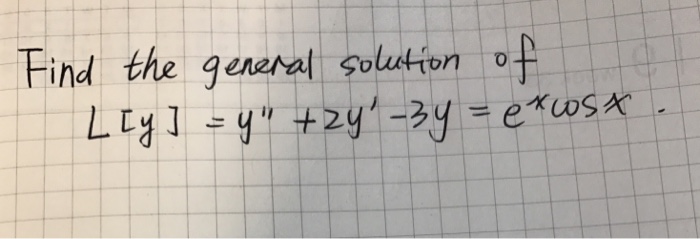 Find the general solution of
L[y] = y" + 2y' - 3y = eˣcosx.